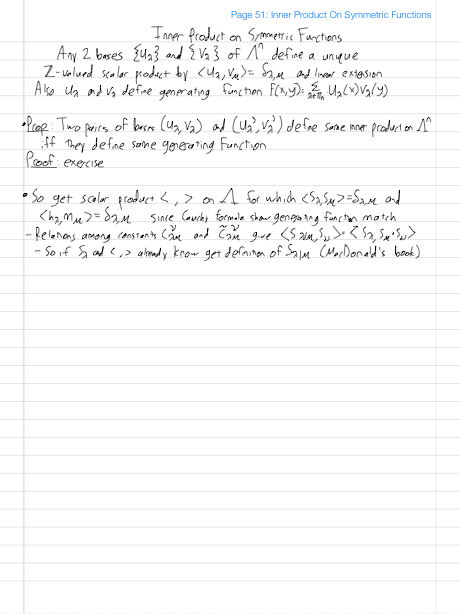 Page 51: Inner Product On Symmetric Functions
Inner Product on Symmetric Functions
Any 2 bases {u_λ} and {v_λ} of Λⁿ define a unique
ℤ-valued scalar product by <u_λ, v_μ> = δ_λ,μ and linear extension
Also u_λ and v_λ define generating function f(x,y) = Σ_{λ∈Πn} u_λ(x)v_λ(y)
• Prop: Two pairs of bases (u_λ, v_λ) and (u_λ', v_λ') define same inner product on Λⁿ
iff they define same generating function
Proof: exercise
• So get scalar product < , > on Λ for which <s_λ, s_μ> = δ_λ,μ and
<h_λ, m_μ> = δ_λ,μ since Cauchy formula show generating function match
- Relations among constants C^ν_λμ and C̃^ν_λμ give <s_λ/μ, s_ν> = <s_λ, s_μ·s_ν>
- So if s_λ and < , > already know get definition of s_λ/μ (MacDonald's book)